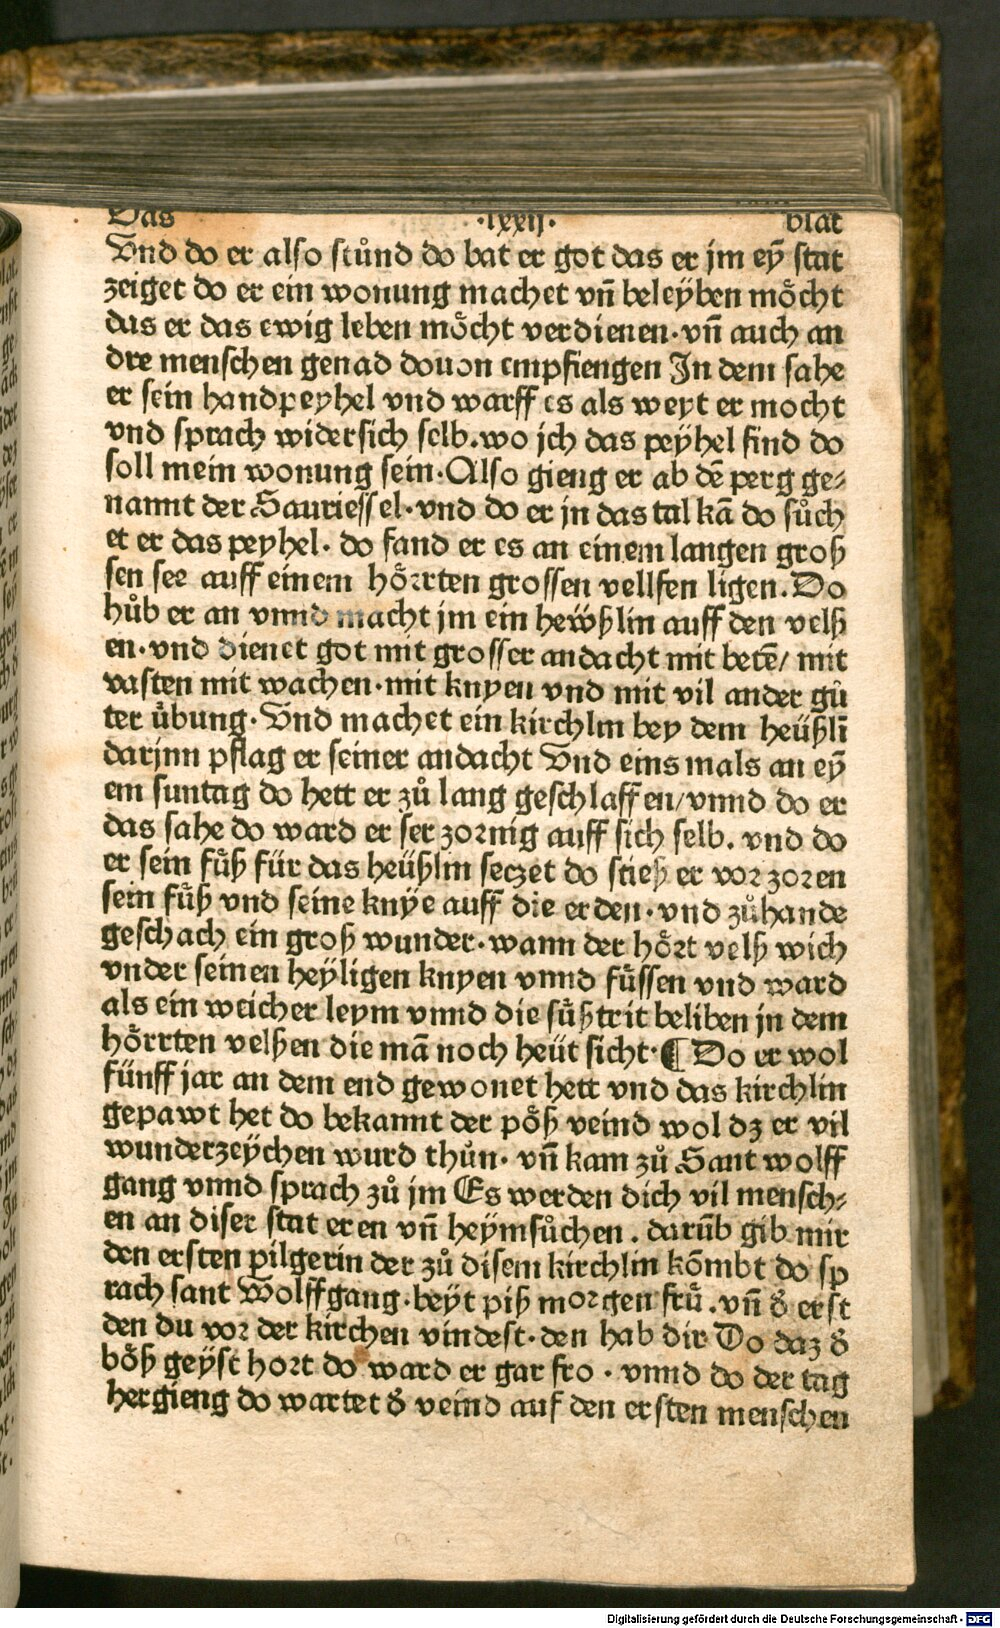 Das .lxxij. blat
Vnd do er also stůnd do bat er got das er jm eÿ stat
zeiget do er ein wonung machet vñ beleÿben mőcht
das er das ewig leben mőcht verdienen. vñ auch an
dre menschen genad douon empfiengen In dem sahe
er sein handpeyhel vnd warff es als weyt er mocht
vnd sprach widersich selb. wo jch das peÿhel find do
soll mein wonung sein. Also gieng er ab dē perg ge⸗
nannt der Sauriessel. vnd do er jn das tal kā do sůch
et er das peyhel. do fand er es an einem langen groß
sen see auff einem hőrrten grossen vellsen ligen. Do
hůb er an vnnd macht jm ein hewßlin auff den velß
en. vnd dienet got mit grosser andacht mit betē/ mit
vasten mit wachen. mit knyen vnd mit vil ander gů
ter übung. Vnd machet ein kirchlin bey dem heüßlī
darjnn pflag er seiner andacht Vnd eins mals an eÿ
em suntag do hett er zů lang geschlaffen/ vnnd do er
das sahe do ward er ser zornig auff sich selb. vnd do
er sein fůß für das heüßlin seczet do stieß er vor zoren
sein fůß vnd seine knye auff die erden. vnd zůhande
geschach ein groß wunder. wann der hőrt velß wich
vnder seinen heÿligen knyen vnnd fůssen vnd ward
als ein weicher leym vnnd die fůßtrit beliben jn dem
hőrrten velßen die mā noch heüt sicht. ¶ Do er wol
fünff jar an dem end gewonet hett vnd das kirchlin
gepawt het do bekannt der pőß veind wol dz er vil
wunderzeÿchen wurd thůn. vñ kam zů Sant wolff
gang vnnd sprach zů jm Es werden dich vil mensch⸗
en an diser stat eren vñ heÿmsůchen. darūb gib mir
den ersten pilgerin der zů disem kirchlin kōmbt do sp
rach sant Wolffgang. beyt piß morgen frů. vñ ď erst
den du vor der kirchen vindest. den hab dir Do daz ď
bőß geyst hort do ward er gar fro. vnnd do der tag
hergieng do wartet ď veind auf den ersten menschen
Digitalisierung gefördert durch die Deutsche Forschungsgemeinschaft - DFG